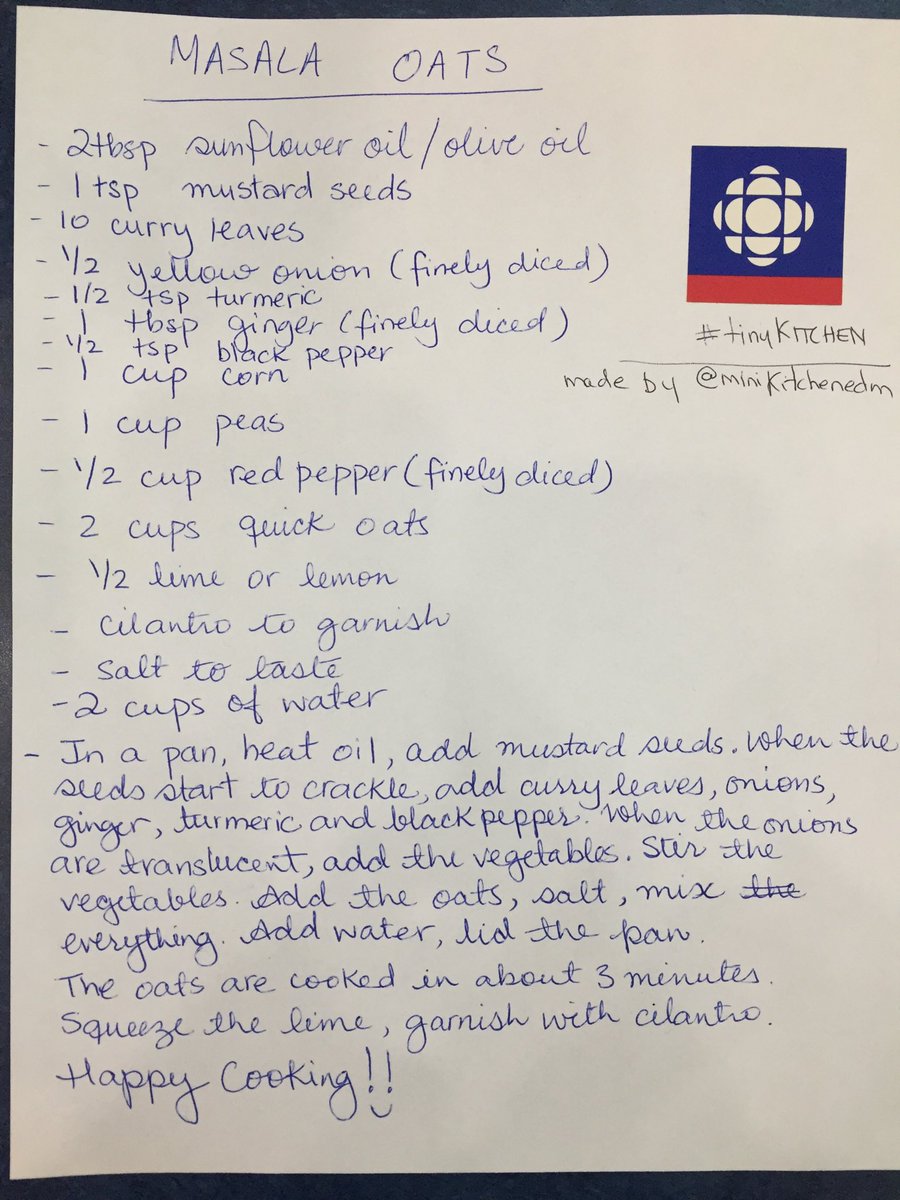 MASALA OATS
- 2tbsp sunflower oil/olive oil
- 1 tsp mustard seeds
- 10 curry leaves
- 1/2 yellow onion (finely diced)
- 1/2 tsp turmeric
- 1 tbsp ginger (finely diced)
- 1/2 tsp black pepper
- 1 cup corn
- 1 cup peas
- 1/2 cup red pepper (finely diced)
- 2 cups quick oats
- 1/2 lime or lemon
- cilantro to garnish
- salt to taste
- 2 cups of water
- In a pan, heat oil, add mustard seeds. When the
seeds start to crackle, add curry leaves, onions,
ginger, turmeric and black pepper. When the onions
are translucent, add the vegetables. Stir the
vegetables. Add the oats, salt, mix the
everything. Add water, lid the pan.
The oats are cooked in about 3 minutes.
Squeeze the lime, garnish with cilantro.
Happy Cooking!!
#tinyKITCHEN
made by @minikitchenedm